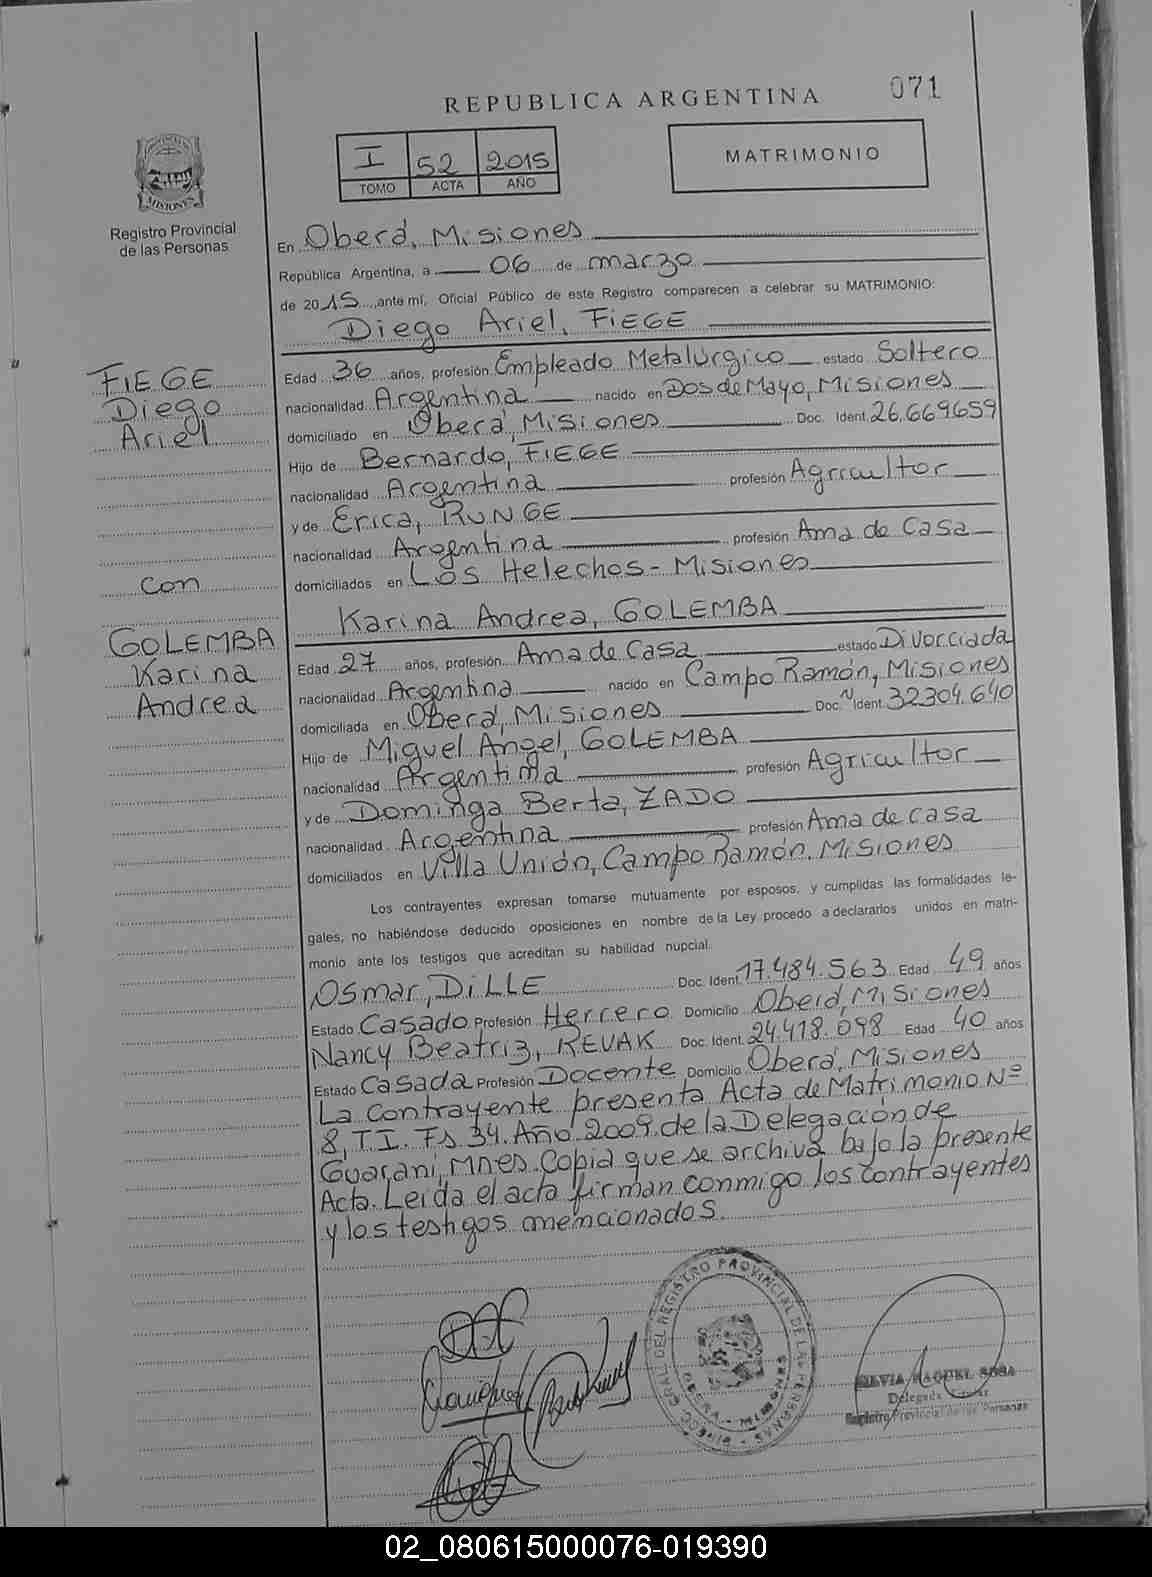 REPUBLICA ARGENTINA
071
I 52 2015
TOMO ACTA AÑO
MATRIMONIO
MISIONES
Registro Provincial
de las Personas
En Oberá, Misiones
República Argentina, a 06 de marzo
de 2015, ante mí, Oficial Público de este Registro comparecen a celebrar su MATRIMONIO:
Diego Ariel, FIEGE
FIEGE
Diego
Ariel
Edad 36 años, profesión Empleado Metalúrgico estado Soltero
nacionalidad Argentina nacido en Dos de Mayo, Misiones
domiciliado en Oberá, Misiones Doc. Ident. 26.669659
Hijo de Bernardo, FIEGE
nacionalidad Argentina profesión Agricultor
y de Erica, RUNGE
nacionalidad Argentina profesión Ama de Casa
domiciliados en Los Helechos - Misiones
Con
Karina Andrea, GOLEMBA
GOLEMBA
Karina
Andrea
Edad 27 años, profesión Ama de Casa estado Divorciada
nacionalidad Argentina nacido en Campo Ramón, Misiones
domiciliada en Oberá, Misiones Doc. Ident. 32304.640
Hijo de Miguel Angel, GOLEMBA
nacionalidad Argentina profesión Agricultor
y de Dominga Berta, ZADO
nacionalidad Argentina profesión Ama de casa
domiciliados en Villa Unión, Campo Ramón, Misiones
Los contrayentes expresan tomarse mutuamente por esposos, y cumplidas las formalidades le-
gales, no habiéndose deducido oposiciones en nombre de la Ley procedo a declararlos unidos en matri-
monio ante los testigos que acreditan su habilidad nupcial.
Osmar, DILLE Doc. Ident. 17.484.563 Edad 49 años
Estado Casado Profesión Herrero Domicilio Oberá, Misiones
Nancy Beatriz, REVAK Doc. Ident. 24.418.098 Edad 40 años
Estado Casada Profesión Docente Domicilio Oberá, Misiones
La contrayente presenta Acta de Matrimonio Nº
8, T.I. Fs 34. Año 2009. de la Delegación de
Guaraní, Mnes. Copia que se archiva bajo la presente
Acta. Leída el acta firman conmigo los contrayentes
y los testigos mencionados.
DIRECC. GRAL DEL REGISTRO PROVINCIAL DE LAS PERSONAS
SILVIA RAQUEL SOSA
Delegada Titular
Registro Provincial de las Personas
02_080615000076-019390